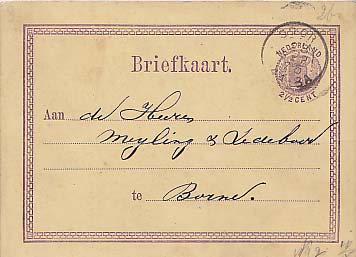 GOOR
NEDERLAND
2½ CENT
Briefkaart.
Aan de Heeren
Meyling & Ledeboer
te Borne.